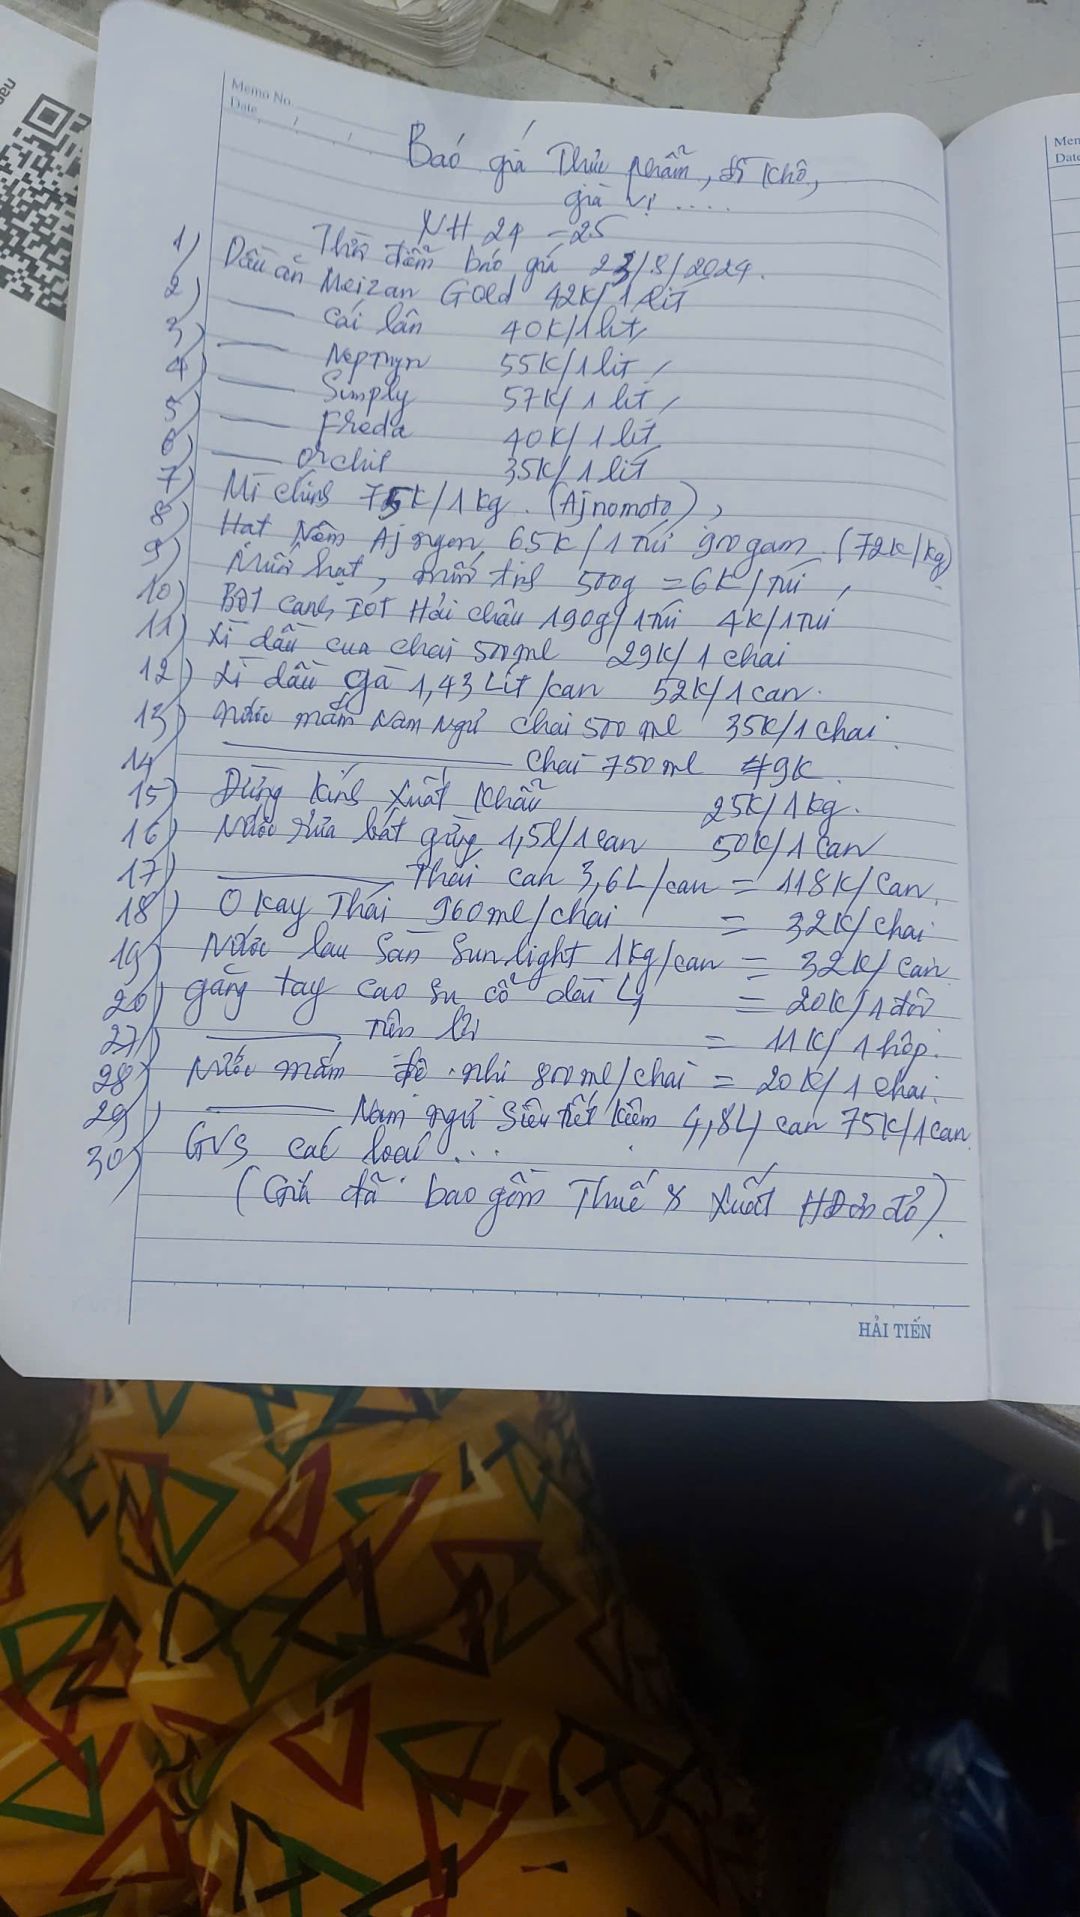 Memo No.
Date
Báo giá Thực phẩm, đồ khô,
gia vị ....
NH 24 - 25
Thời điểm báo giá 23/8/2024.
1) Dầu ăn Meizan Gold 42K/1 lít
2) —— Cái lân 40K/1 lít
3) —— Neptuyn 55K/1 lít
4) —— Simply 57K/1 lít
5) —— Freda 40K/1 lít
6) —— Orchil 35K/1 lít
7) Mì chính 75K/1kg. (Ajnomoto)
8) Hạt Nêm Aj ngon, 65K/1 túi 900gam (72K/kg)
9) Muối hạt, muối tinh 500g = 6K/túi
10) Bột canh, Iốt Hải châu 190g/1túi 4K/1túi
11) Xì dầu cua chai 500ml 29K/1 chai
12) Xì dầu gà 1,43 Lít/can 52K/1 can.
13) Nước mắm Nam Ngư chai 500ml 35K/1 chai.
14 —— Chai 750ml 49K.
15) Đường kính xuất khẩu 25K/1kg.
16) Nước rửa bát gừng 1,5l/1can 50K/1 can
17) —— Thái can 3,6L/can = 118K/can.
18) Okay Thái 960ml/chai = 32K/chai
19) Nước lau sàn Sunlight 1kg/can = 32K/can
20) găng tay cao su cổ dài = 20K/1 đôi
27) —— = 11K/1 hộp.
28) Nước mắm đệ nhị 800ml/chai = 20K/1 chai.
29) —— Nam ngư siêu tiết kiệm 4,8L/can 75K/1can
30) GVS các loại ...
(Giá đã bao gồm Thuế & xuất HĐơn đỏ).
HẢI TIẾN
Date